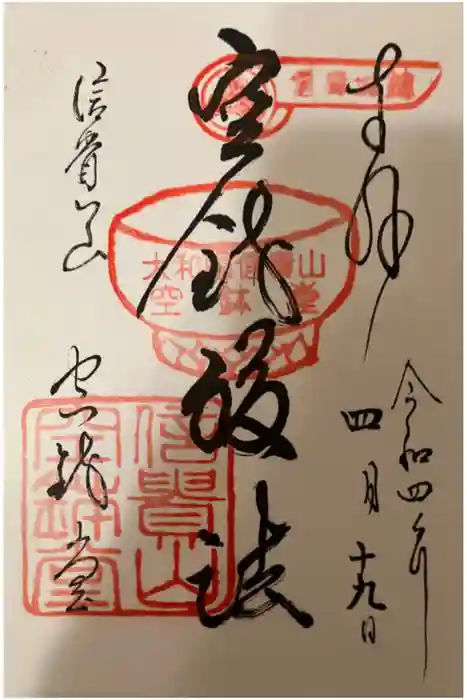 奉拝
令和四年
四月十九日
空鉢護法
大和国信貴山
空鉢堂
信貴山
空鉢堂
信貴山
空鉢堂